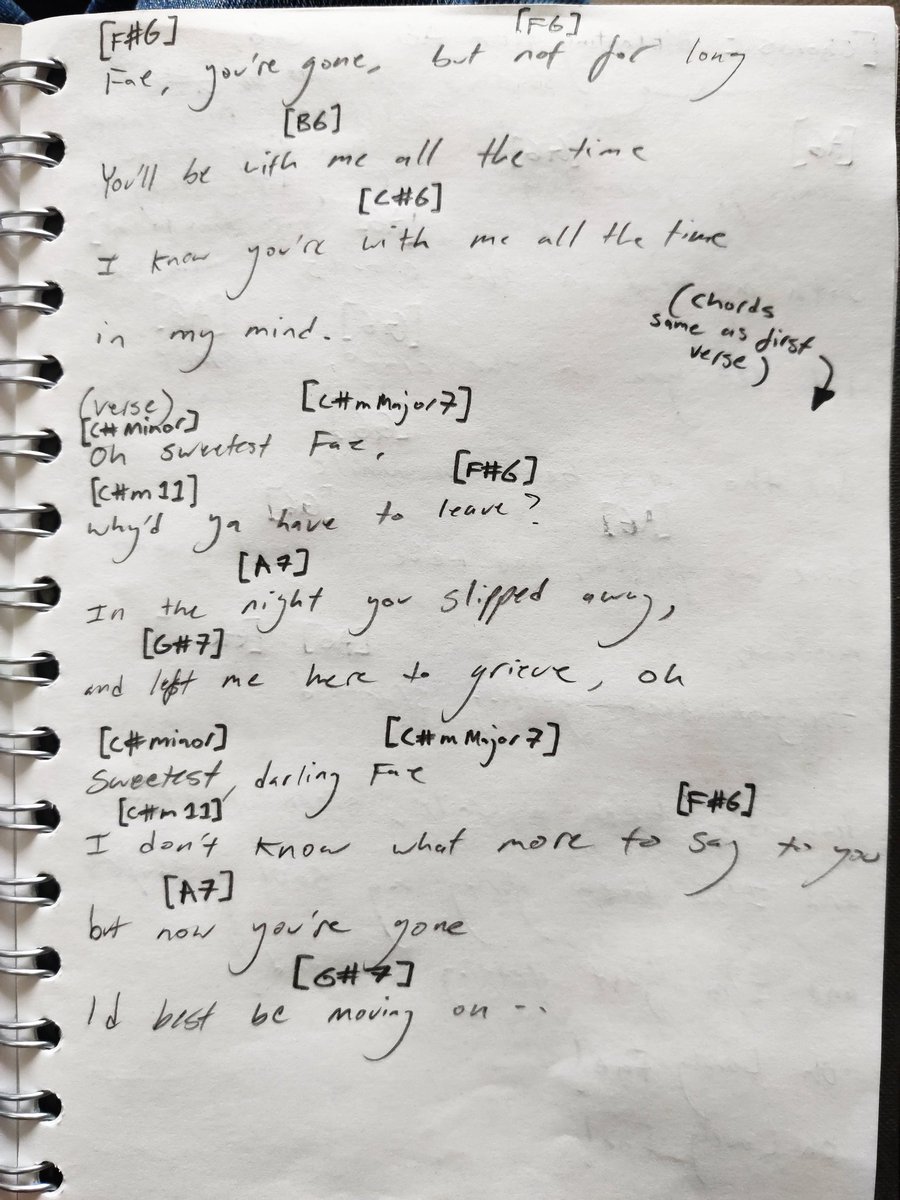 [F#6] [F6]
Fae, you're gone, but not for long
[B6]
You'll be with me all the time
[C#6]
I know you're with me all the time
in my mind.
(chords
same as first
verse)
(verse) [C#mMajor7]
[C#minor]
Oh sweetest Fae,
[C#m11] [F#6]
why'd ya have to leave?
[A7]
In the night you slipped away,
[G#7]
and left me here to grieve, oh
[C#minor] [C#mMajor7]
Sweetest, darling Fae
[C#m11] [F#6]
I don't know what more to say to you
[A7]
but now you're gone
[G#7]
I'd best be moving on...